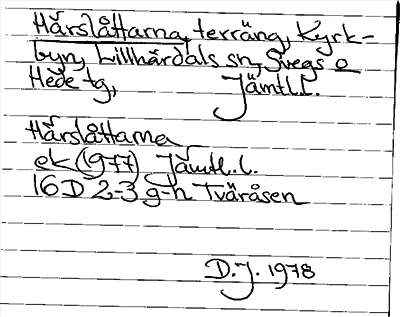 Hårslåttarna, terräng, Kyrk-
byn, Lillhärdals sn, Svegs o
Hede tg, Jämtl.l.
Hårslåttarna
ek (1977) Jämtl.l.
16D 2-3 g-h Tväråsen
D.J. 1978